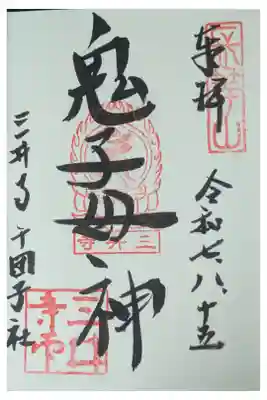 奉拝
令和七、八、十五
鬼子母神
三井寺
三井寺十団子社
三口寺印